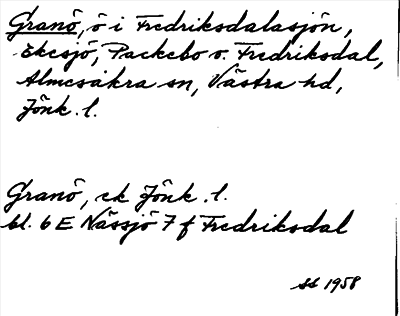 Granö, ö i Fredriksdalasjön,
Ekesjö, Packebo o. Fredriksdal,
Almesåkra sn, Västra hd,
Jönk. l.
Granö, ek Jönk. l.
bl. 6 E Nässjö 7 f Fredriksdal
1958